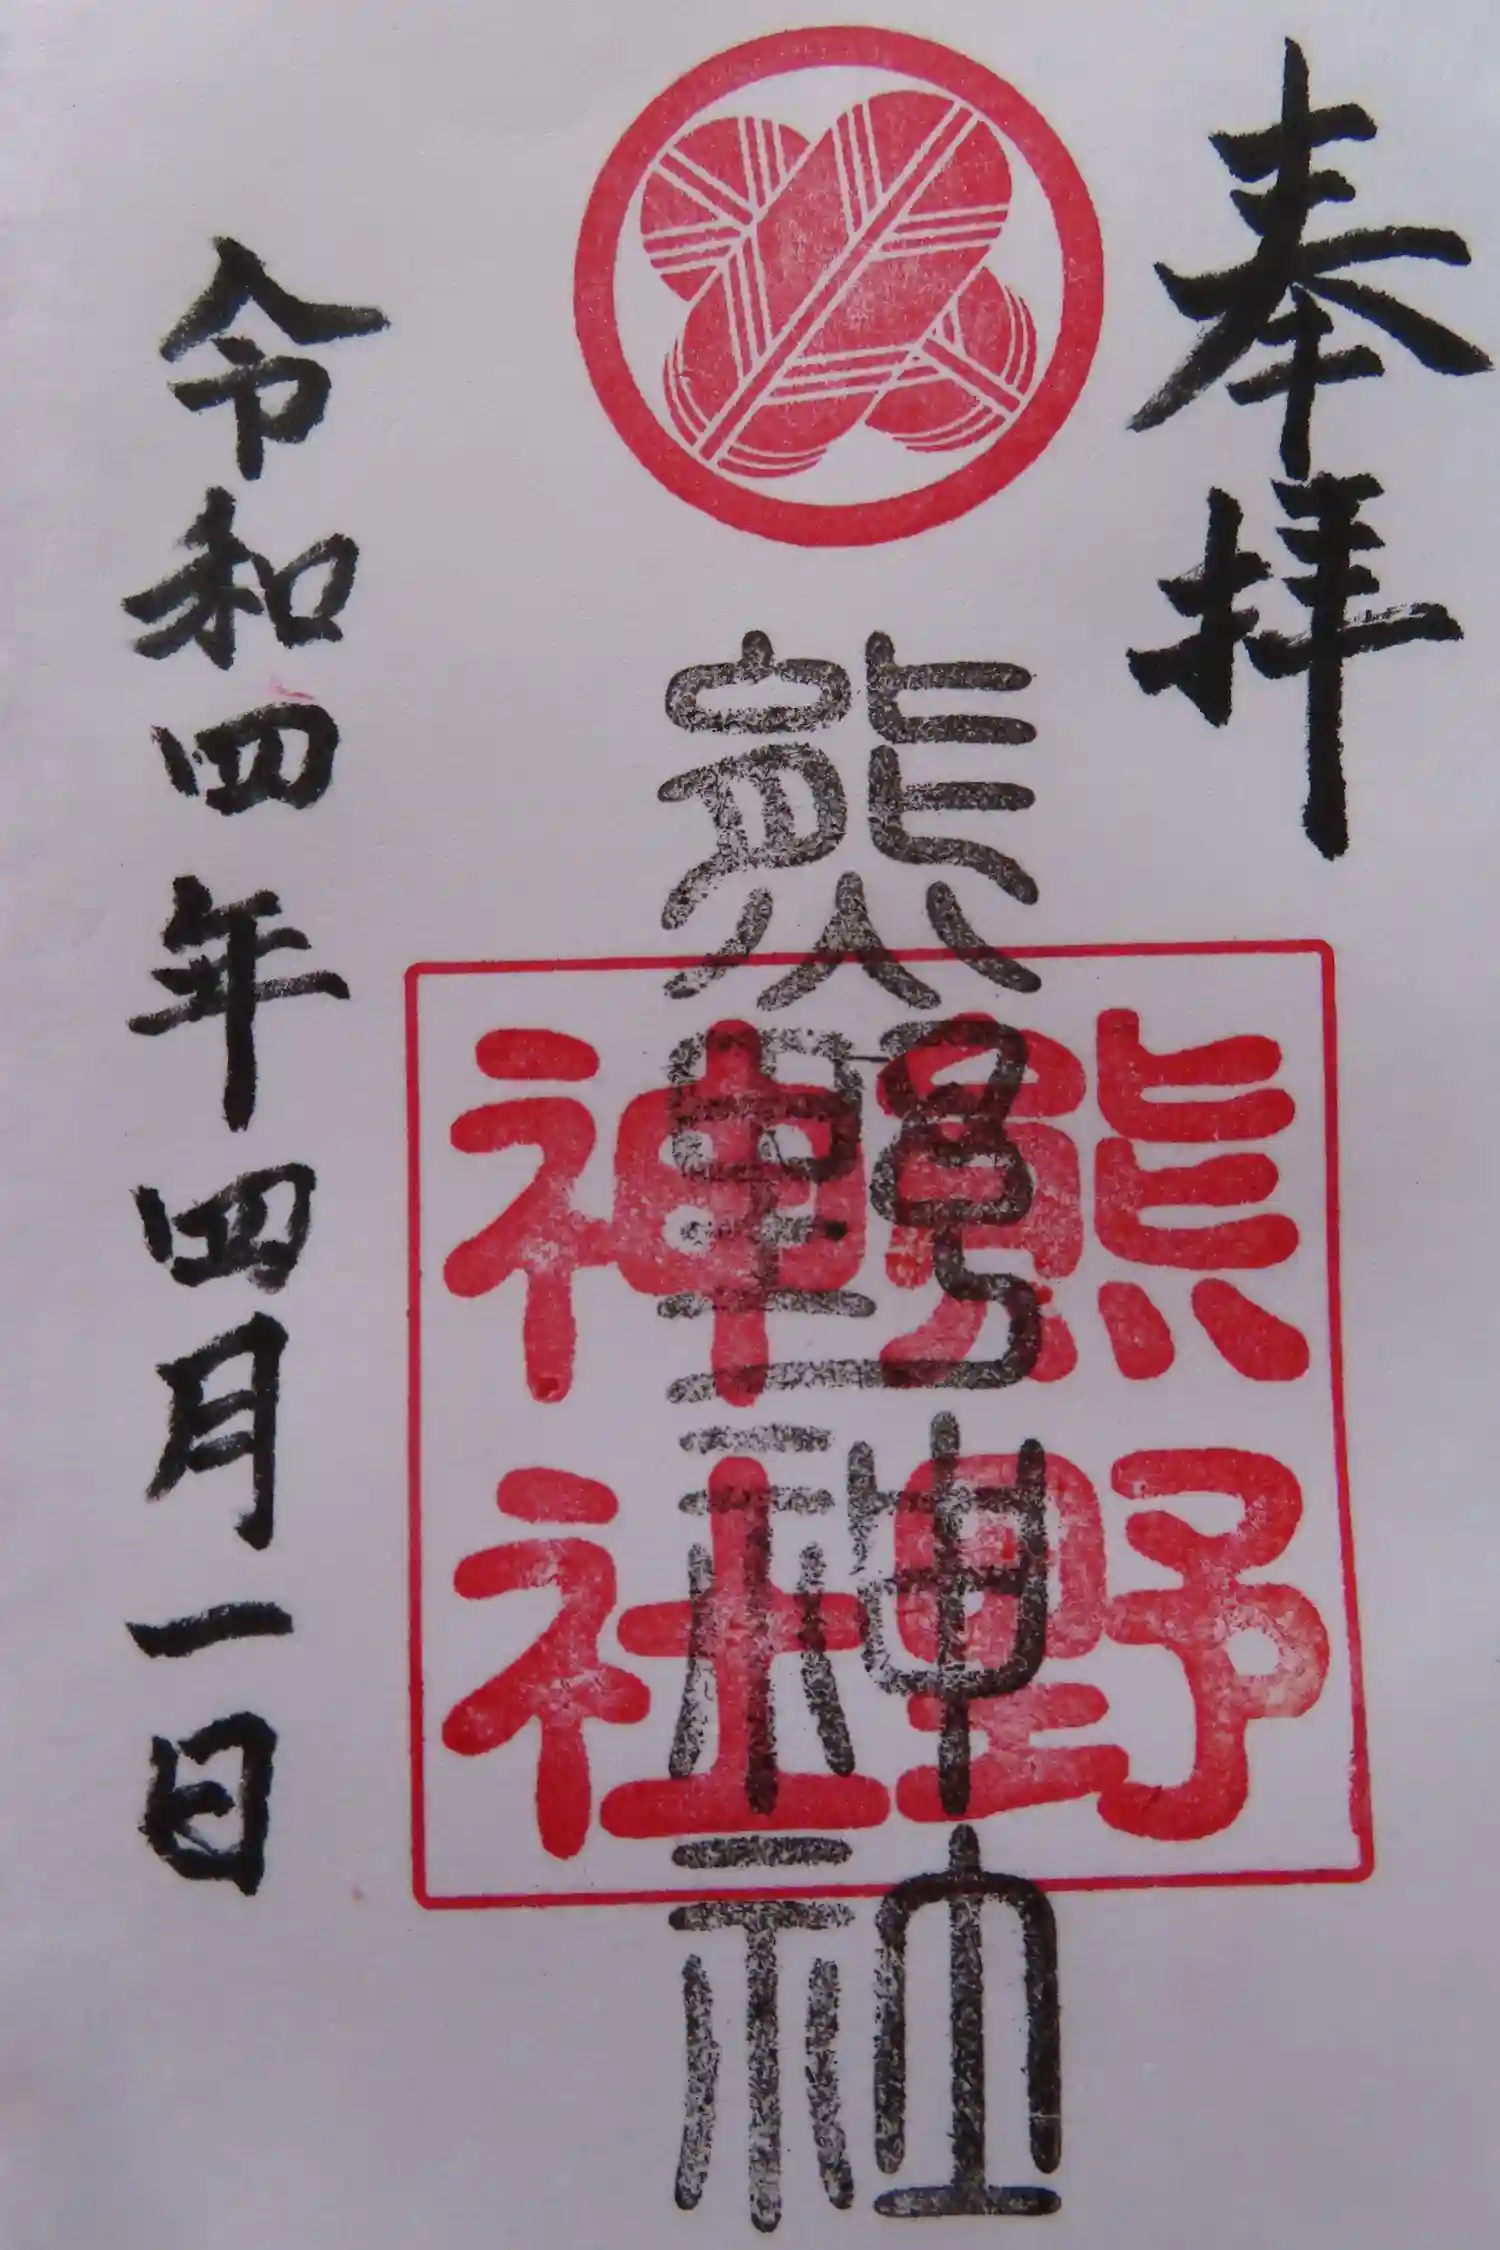 奉拝
熊野神社
熊野神社
令和四年四月一日